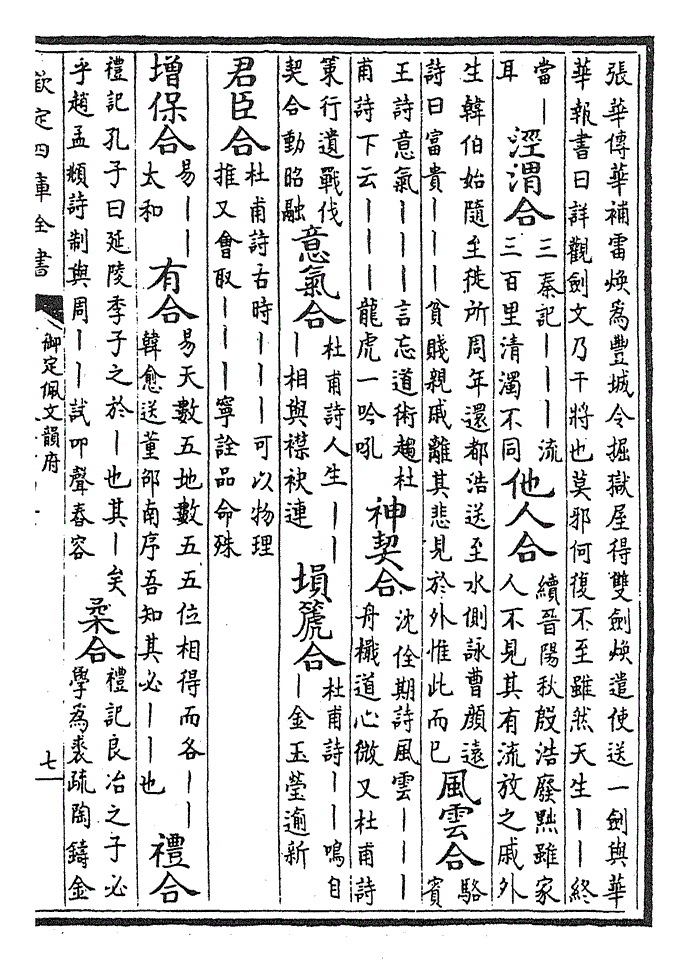 張華傳華補雷煥為豐城令掘獄屋得雙劍煥遣使送一劍與華
華報書曰詳觀劍文乃干將也莫邪何復不至雖然天生｜｜終
當｜
耳
涇渭合
三秦記｜｜｜流
三百里清濁不同
他人合
續晉陽秋殷浩廢黜雖家
人不見其有流放之戚外
生韓伯始隨至徙所周年還都浩送至水側詠曹顏遠
詩曰富貴｜｜｜貧賤親戚離其悲見於外惟此而已
風雲合
駱
賓
王詩意氣｜｜｜｜言忘道術趨杜
甫詩下云｜｜｜｜龍虎一吟吼
神契合
沈佺期詩風雲｜｜｜
舟檝道心微又杜甫詩
策行遺戰伐
契合動昭融
意氣合
杜甫詩人生｜｜
｜相與襟袂連
塤篪合
杜甫詩｜｜鳴自
｜金玉瑩逾新
君臣合
杜甫詩古時｜｜｜可以物理
推又會取｜｜｜寧詮品命殊
增保合
易｜｜
太和
有合
易天數五地數五五位相得而各｜｜
韓愈送董邵南序吾知其必｜｜也
禮合
禮記孔子曰延陵季子之於｜也其｜矣
乎趙孟頫詩制與周｜｜試叩聲舂容
柔合
禮記良冶之子必
學為裘疏陶鑄金
欽定四庫全書
御定佩文韻府
七